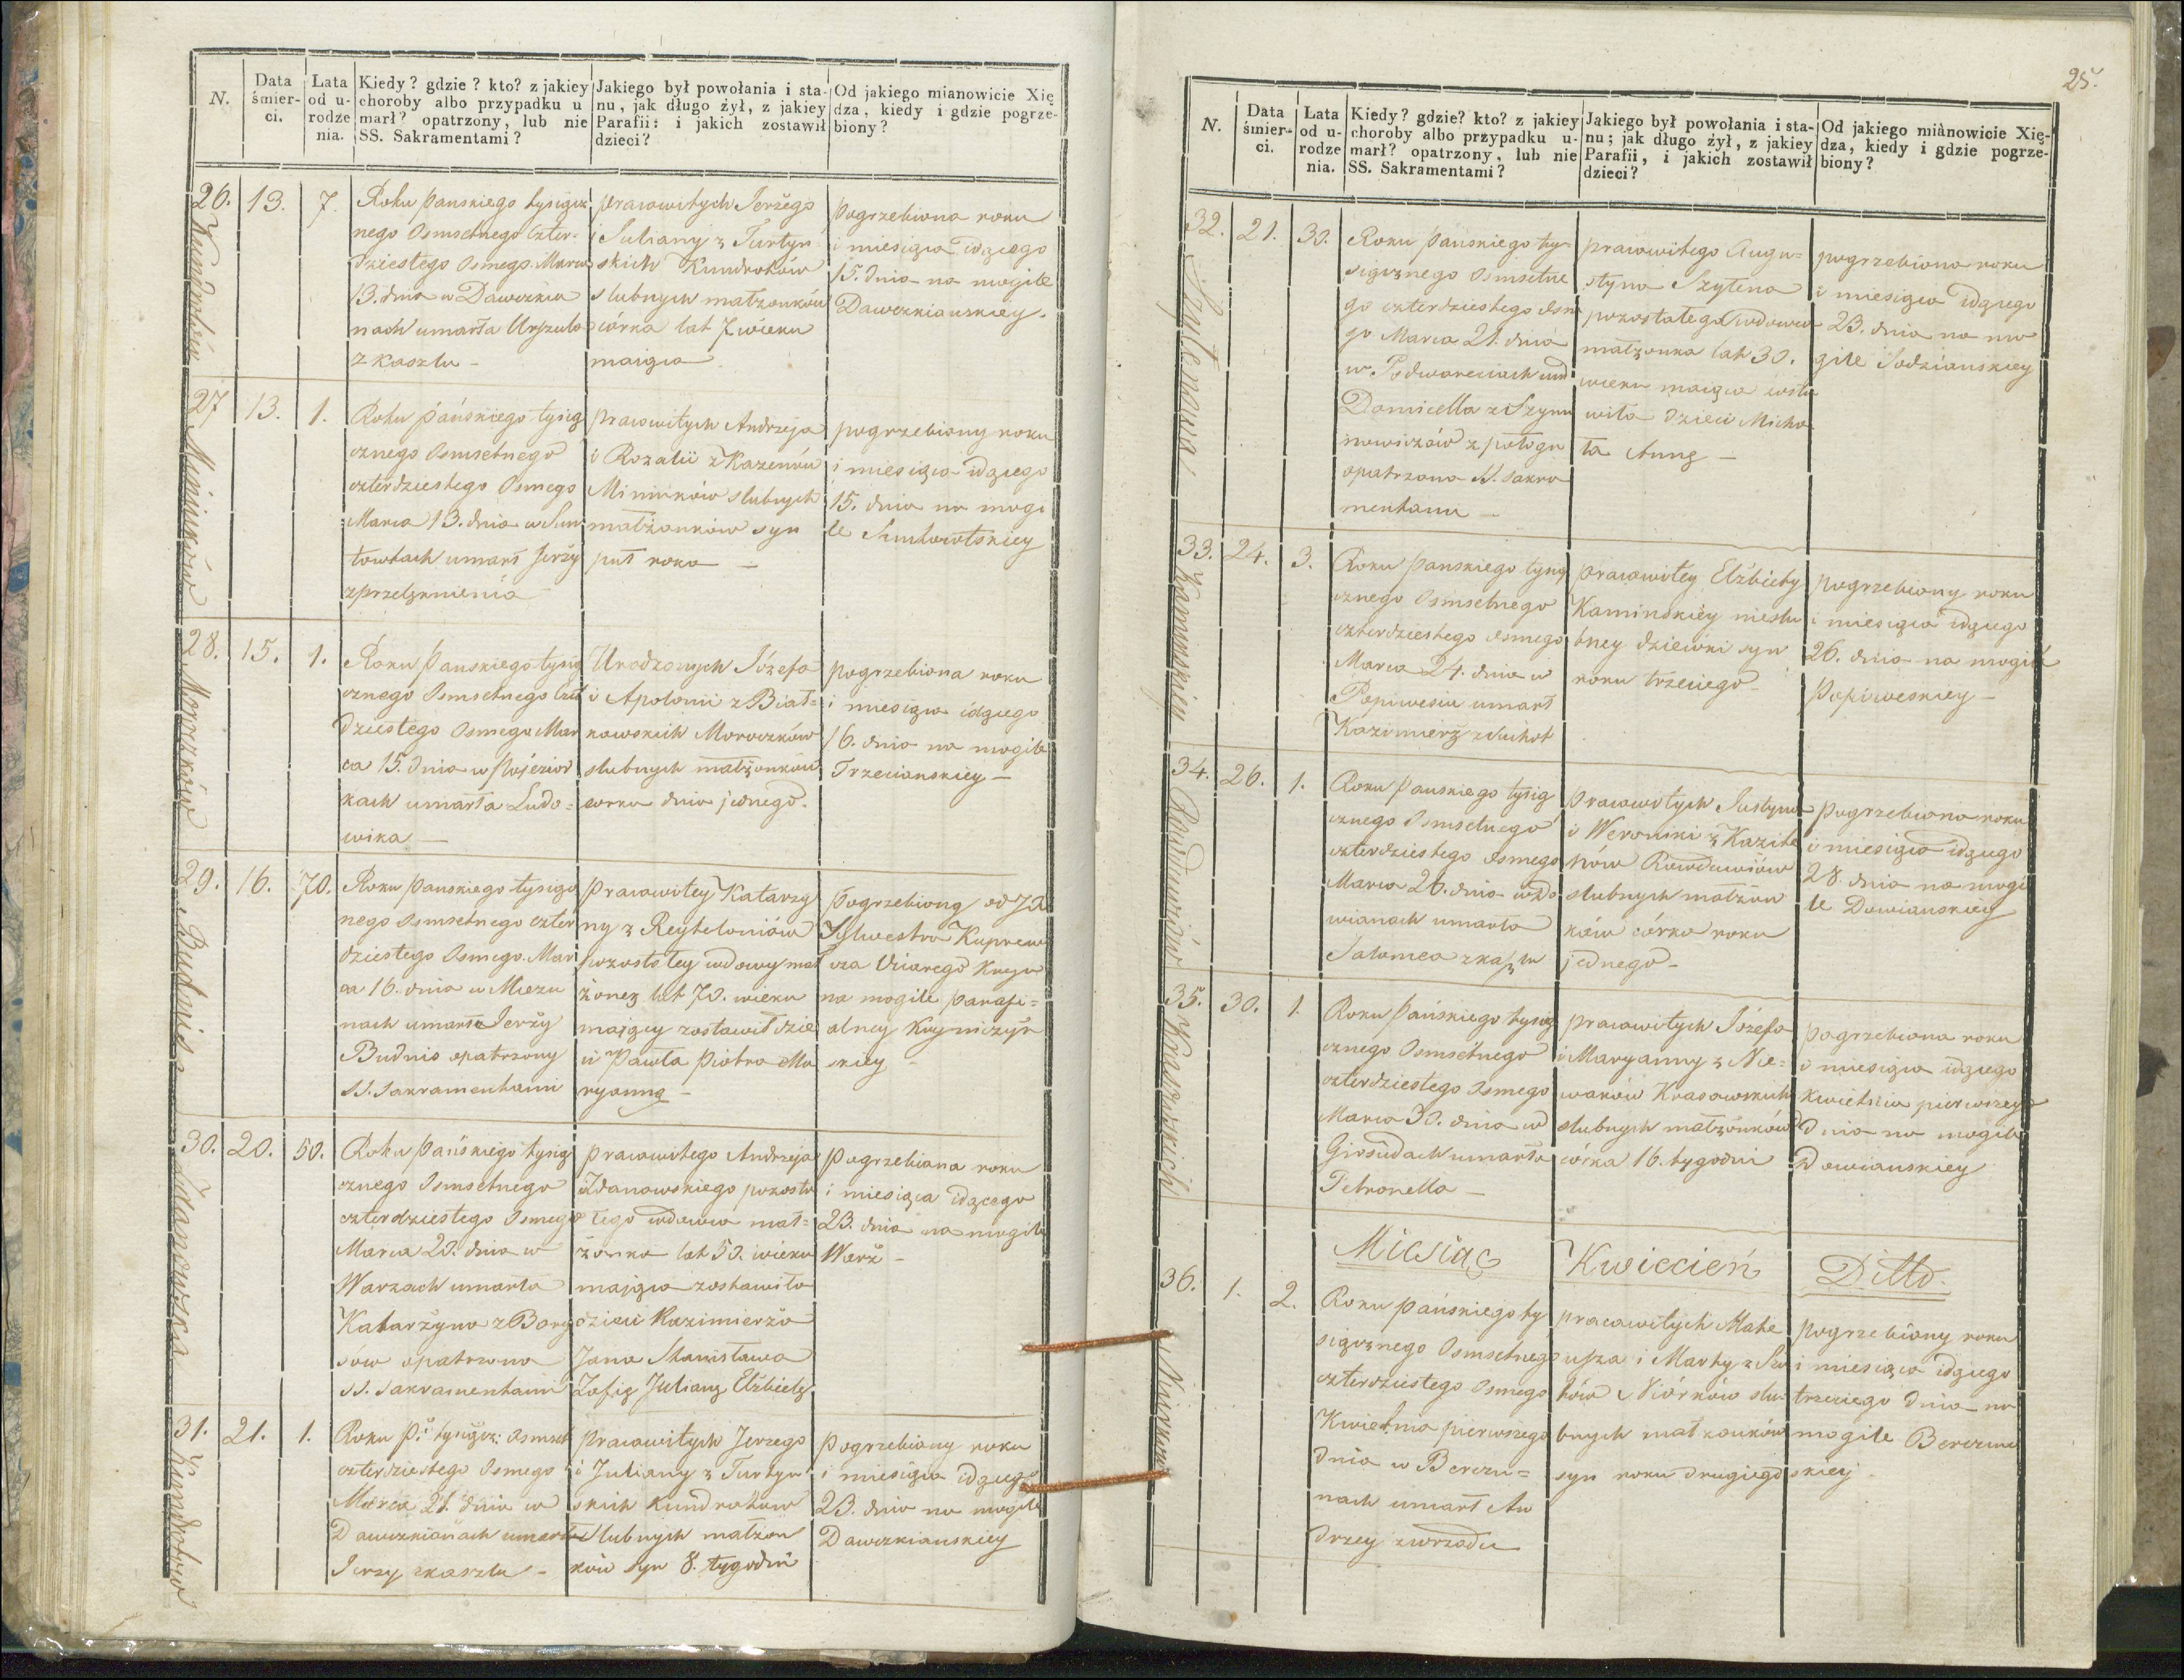 N.
Data śmier-ci.
Lata od u-rodze nia.
Kiedy? gdzie? kto? z jakiey
choroby albo przypadku u
marł? opatrzony, lub nie
SS. Sakramentami?
Jakiego był powołania i sta-
nu, jak długo żył, z jakiey
Parafii: i jakich zostawił
dzieci?
Od jakiego mianowicie Xię
dza, kiedy i gdzie pogrze-
biony?
26.
13.
7.
Roku Panskiego tysiącz
nego Osmsetnego Czter-
dziestego Osmego Marca
13. dnia w Dawczkia
nach umarła Urszula
z Kaszlu -
pracowitych Jerzego
i Juliany z Turtyn
skich Kundrotów
slubnych małżonków
córka lat 7 wieku
maiąca
pogrzebiona roku
i miesiąca idącego
15. dnia na mogile
Dawczkianskiey.
27
13.
1.
Roku Pańskiego tysią
cznego Osmsetnego
czterdziestego Osmego
Marca 13. dnia w Sun
towtach umarł Jerzy
z przelęknienia
pracowitych Andrzeja
i Rozalii z Kazenów
Mininków slubnych
małżonków syn
puł roku -
pogrzebiony roku
i miesiąca idącego
15. dnia na mogi
le
Mininków
28.
15.
1.
Roku Panskiego tysią
cznego Osmsetnego Czter
dziestego Osmego Mar
ca 15. dnia w Pojezior
kach umarła Ludo-
wika -
Urodzonych Józefa
i Apolonii z Biał-
kowskich Moroczków
slubnych małżonków
corka dnia jednego.
pogrzebiona roku
i miesiąca idącego
16. dnia na mogile
Trzecianskiey -
Moroczków
29.
16.
70.
Roku Panskiego tysiącz
nego Osmsetnego czter
dziestego Osmego Mar
ca 16. dnia w Miezu
nach umarł Jerzy
Budnis opatrzony
SS. Sakramentami
Pracowitey Katarzy
ny z Reyteloniów
pozostałey wdowy mał
żonek lat 70. wieku
mający zostawił dzie
ci Pawła Piotra Ma
ryannę -
Pogrzebiony od JX
Sylwestra Kuprew
na mogile parafi-
alney
skiey -
Budnis
30.
20.
50.
Roku Pańskiego tysią
cznego Osmsetnego
czterdziestego Osmego
Marca 20. dnia w
Warzach umarła
Katarzyna z Bory
sów opatrzona
SS. Sakramentami
pracowitego Andrzeja
Zdanowskiego pozosta
łego wdowca mał-
żonka lat 50. wieku
mająca zostawiła
dzieci Kazimierza
Jana Stanisława
Zofię Juliannę Elżbietę
Pogrzebiona roku
i miesiąca idącego
23. dnia na mogile
Warż -
Zdanowska
31.
21.
1.
Roku P. tysiącz: Osmset
czterdziestego Osmego
Marca 21. dnia w
Dawczkianach umarł
Jerzy z kaszlu -
pracowitych Jerzego
i Juliany z Turtyn
skich Kundrotow
slubnych małżon
ków syn 8. tygodni
Pogrzebiony roku
i miesiąca idącego
23. dnia na mogile
Dawczkianskiey
25.
N.
Data śmier-ci.
Lata od u-rodze nia.
Kiedy? gdzie? kto? z jakiey
choroby albo przypadku u-
marł? opatrzony, lub nie
SS. Sakramentami?
Jakiego był powołania i sta-
nu; jak długo żył, z jakiey
Parafii, i jakich zostawił
dzieci?
Od jakiego miànowicie Xię-
dza, kiedy i gdzie pogrze-
biony?
32.
21.
30.
Roku Pańskiego ty-
siącznego Osmsetne
go czterdziestego Osme
go Marca 21. dnia
w Podwareciach umarła
Domicella z Szyma
nowiczów z połogu
opatrzona SS. Sakra
mentami -
pracowitego Augu-
styna Szytena
pozostałego wdowca
małżonka lat 30.
wieku mająca zosta
wiła dzieci Micha
ła Annę -
pogrzebiona roku
i miesiąca idącego
23. dnia na mo
gile Sodzianskiey
Szytenowa
33.
24.
3.
Roku Panskiego tysią
cznego Osmsetnego
czterdziestego Osmego
Marca 24. dnia w
Popiwesiu umarł
Kazimierz z Suchot
pracowitey Elżbiety
Kaminskiey nieslu
bney dziewki syn
roku trzeciego -
pogrzebiony roku
i miesiąca idącego
26. dnia na mogile
Popiweskiey -
Kaminskiey
34.
26.
1.
Roku Panskiego tysią
cznego Osmsetnego
czterdziestego Osmego
Marca 26. dnia w Do
wianach umarła
Salomea z kaszlu
pracowitych Justyna
i Weroniki z Kazite
nów Rowdawiów
slubnych małżon
ków córka roku
jednego -
pogrzebiona roku
i miesiąca idącego
28. dnia na mogi
le Dowianskiey
35.
30.
1.
Roku Pańskiego tysią
cznego Osmsetnego
czterdziestego Osmego
Marca 30. dnia w
Girsudach umarła
Petronella -
pracowitych Józefa
i Maryanny z No-
waków Krasowskich
slubnych małżonków
córka 16. tygodni
pogrzebiona roku
i miesiąca idącego
Kwietnia pierwszego
dnia na mogile
Dowianskiey
Miesiąc Kwiecień Ditto.
36.
1.
2.
Roku Pańskiego ty
siącznego Osmsetnego
czterdziestego Osmego
Kwietnia pierwszego
dnia w Berczu-
nach umarł An
drzey z wrzodu
pracowitych Mate
usza i Marty z
slu
bnych małżonków
syn roku drugiego
pogrzebiony roku
i miesiąca idącego
trzeciego dnia na
mogile Berczun
skiey